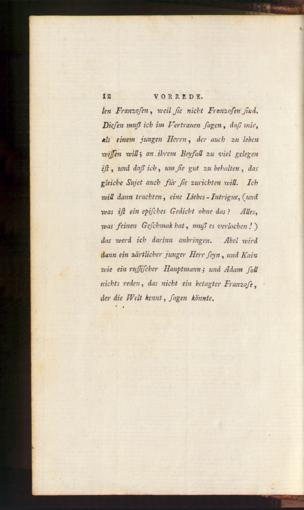 12 VORREDE.
len Franzosen, weil sie nicht Franzosen sind.
Diesen muß ich im Vertrauen sagen, daß mir,
als einem jungen Herrn, der auch zu leben
wissen will; an ihrem Beyfall zu viel gelegen
ist, und daß ich, um sie gut zu behalten, das
gleiche Sujet auch für sie zurichten will. Ich
will dann trachten, eine Liebes-Intrigue, (und
was ist ein episches Gedicht ohne das? Alles,
was feinen Geschmak hat, muß es verlachen!)
das werd ich darinn anbringen. Abel wird
dann ein zärtlicher junger Herr seyn, und Kain
wie ein russischer Hauptmann; und Adam soll
nichts reden, das nicht ein betagter Franzose,
der die Welt kennt, sagen könnte.